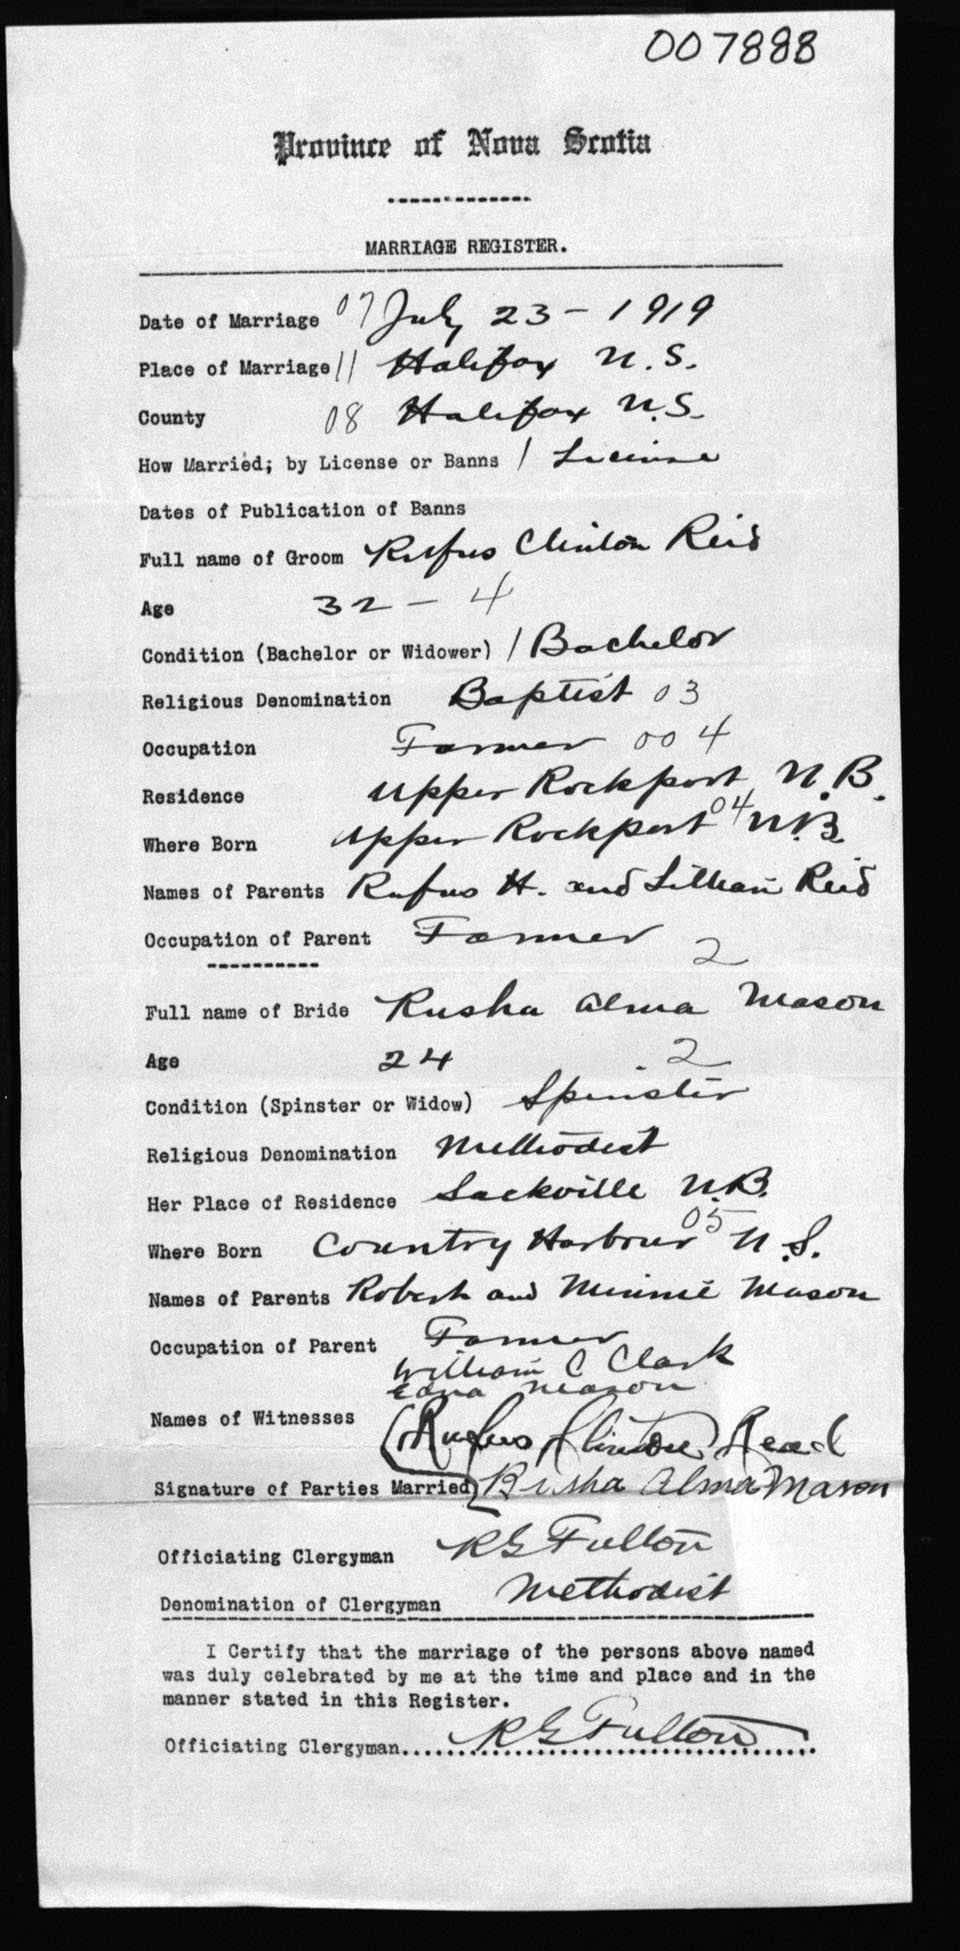 007888
Province of Nova Scotia
MARRIAGE REGISTER.
Date of Marriage 07 July 23 - 1919
Place of Marriage 11 Halifax N.S.
County 08 Halifax N.S.
How Married; by License or Banns / License
Dates of Publication of Banns
Full name of Groom Rufus Clinton Reid
Age 32 - 4
Condition (Bachelor or Widower) / Bachelor
Religious Denomination Baptist 03
Occupation Farmer 004
Residence Upper Rockport N.B.
Where Born Upper Rockport 04 N.B.
Names of Parents Rufus H. and Lillian Reid
Occupation of Parent Farmer 2
Full name of Bride Rusha Alma Mason
Age 24 2
Condition (Spinster or Widow) Spinster
Religious Denomination Methodist
Her Place of Residence Sackville N.B.
Where Born Country Harbour 05 N.S.
Names of Parents Robert and Minnie Mason
Occupation of Parent Farmer
William C Clark
Edna Mason
Names of Witnesses
Rufus Clinton Read
Signature of Parties Married Risha Alma Mason
Officiating Clergyman R G Fulton
Denomination of Clergyman Methodist
I Certify that the marriage of the persons above named
was duly celebrated by me at the time and place and in the
manner stated in this Register.
Officiating Clergyman.... R G Fulton